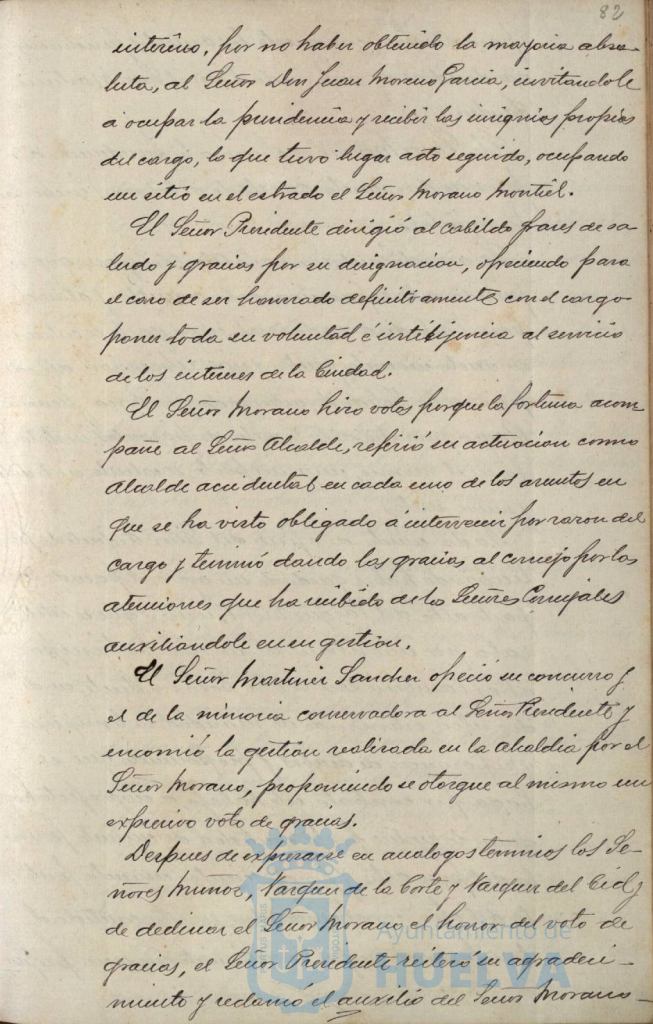 82
interino, por no haber obtenido la mayoria abso-
luta, al Señor Don Juan Moreno Garcia, invitandole
á ocupar la presidencia y recibir las insignias propias
del cargo, lo que tuvo lugar acto seguido, ocupando
un sitio en el estrado el Señor Morano Montiel.
El Señor Presidente dirigió al cabildo frases de sa-
ludo y gracias por su designacion, ofreciendo para
el caso de ser honrado definitivamente con el cargo
poner toda su voluntad é inteligencia al servicio
de los intereses de la Ciudad.
El Señor Morano hizo votos porque la fortuna acom-
pañe al Señor Alcalde, refirió su actuacion como
Alcalde accidental en cada uno de los asuntos en
que se ha visto obligado á intervenir por razon del
cargo y terminó dando las gracias al consejo por las
atenciones que ha recibido de los Señores Concejales
auxiliándole en su gestion.
El Señor Martinez Sanchez ofreció su concurso y
el de la minoria conservadora al Señor Presidente y
encomió la gestion realizada en la Alcaldia por el
Señor Morano, proponiendo se otorgue al mismo un
expresivo voto de gracias.
Despues de expresarse en analogos terminos los Se-
ñores Muñoz, Vazquez de la Corte y Vazquez del Cid y
de declinar el Señor Morano el honor del voto de
gracias, el Señor Presidente reiteró su agradeci-
miento y reclamó el auxilio del Señor Morano
Ayuntamiento de
HUELVA